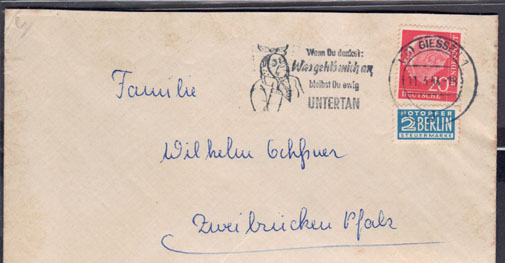 Wenn Du denkst:
Was geht's mich an,
bleibst Du ewig
UNTERTAN
GIESSEN 1
20
DEUTSCHE
NOTOPFER
2 BERLIN
STEUERMARKE
Familie
Wilhelm
Zweibrücken Pfalz